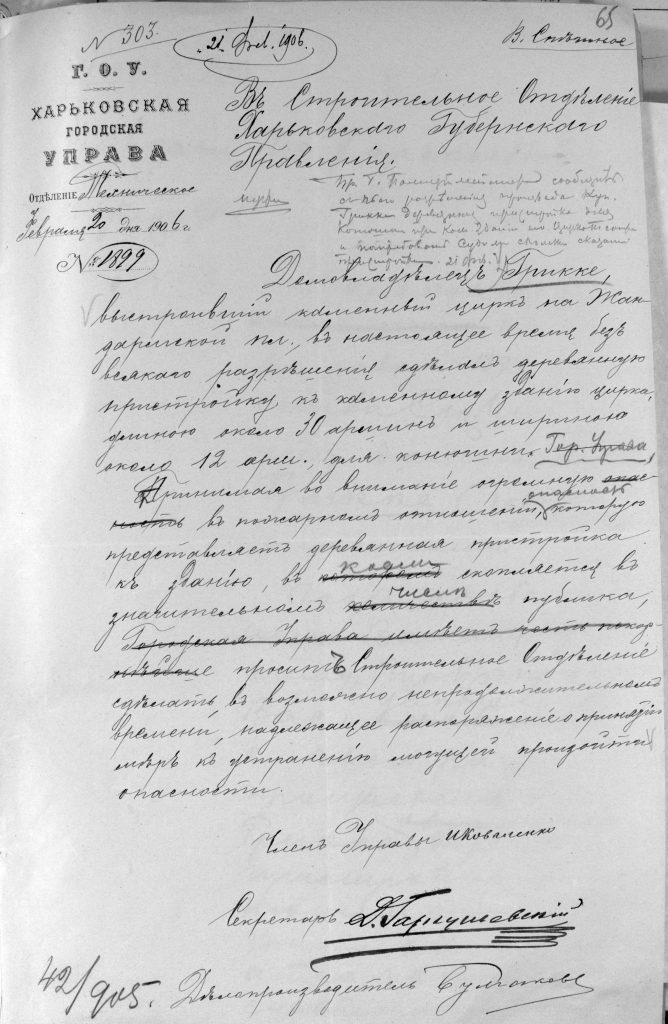 65
N 303.
21 Фев. 1906.
В. Спѣшное
Г. О. У.
ХАРЬКОВСКАЯ
ГОРОДСКАЯ
УПРАВА
Отдѣленіе Техническое
Февраля 20 дня 1906 г.
№ 1899
Въ Строительное Отдѣленіе
Харьковскаго Губернскаго
Правленія.
сообщить
разрѣшенія
деревянная пристройка для
конюшни при
и
21 фев.
Домовладѣлецъ Грикке,
выстроившій каменный циркъ на Жан-
дармской пл., въ настоящее время безъ
всякаго разрѣшенія сдѣлалъ деревянную
пристройку къ каменному зданію цирка,
длиною около 30 аршинъ и шириною
около 12 арш. для конюшни. Гор. Управа,
Принимая во вниманіе огромную опас-
опасность
ность въ пожарномъ отношеніи, которую
представляетъ деревянная пристройка
къ зданію, въ которомъ скопляется въ
числѣ
значительномъ количествѣ публика,
Городская Управа имѣетъ честь покор-
нѣйше проситъ Строительное Отдѣленіе
сдѣлать, въ возможно непродолжительномъ
времени, надлежащее распоряженіе о принятіи
мѣръ къ устраненію могущей произойти
опасности.
Членъ Управы И Коваленко
Секретарь Д.
42/905. Дѣлопроизводитель